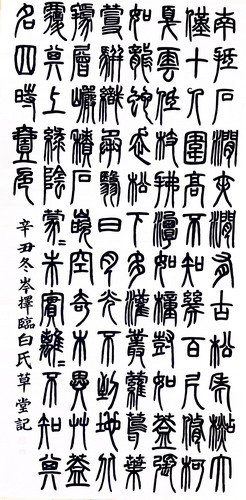 南抵石澗夾澗有古松老杉大
僅十人圍高不知幾百尺修柯
戛雲低枝拂潭如幢豎如蓋張
如龍蛇走松下多灌叢蘿蔦葉
蔓駢織承翳日月光不到地北
據層巖積石嵌空奇木異草蓋
覆其上綠陰蒙=朱實離=不知其
名四時壹色
辛丑冬岑擇臨白氏草堂記